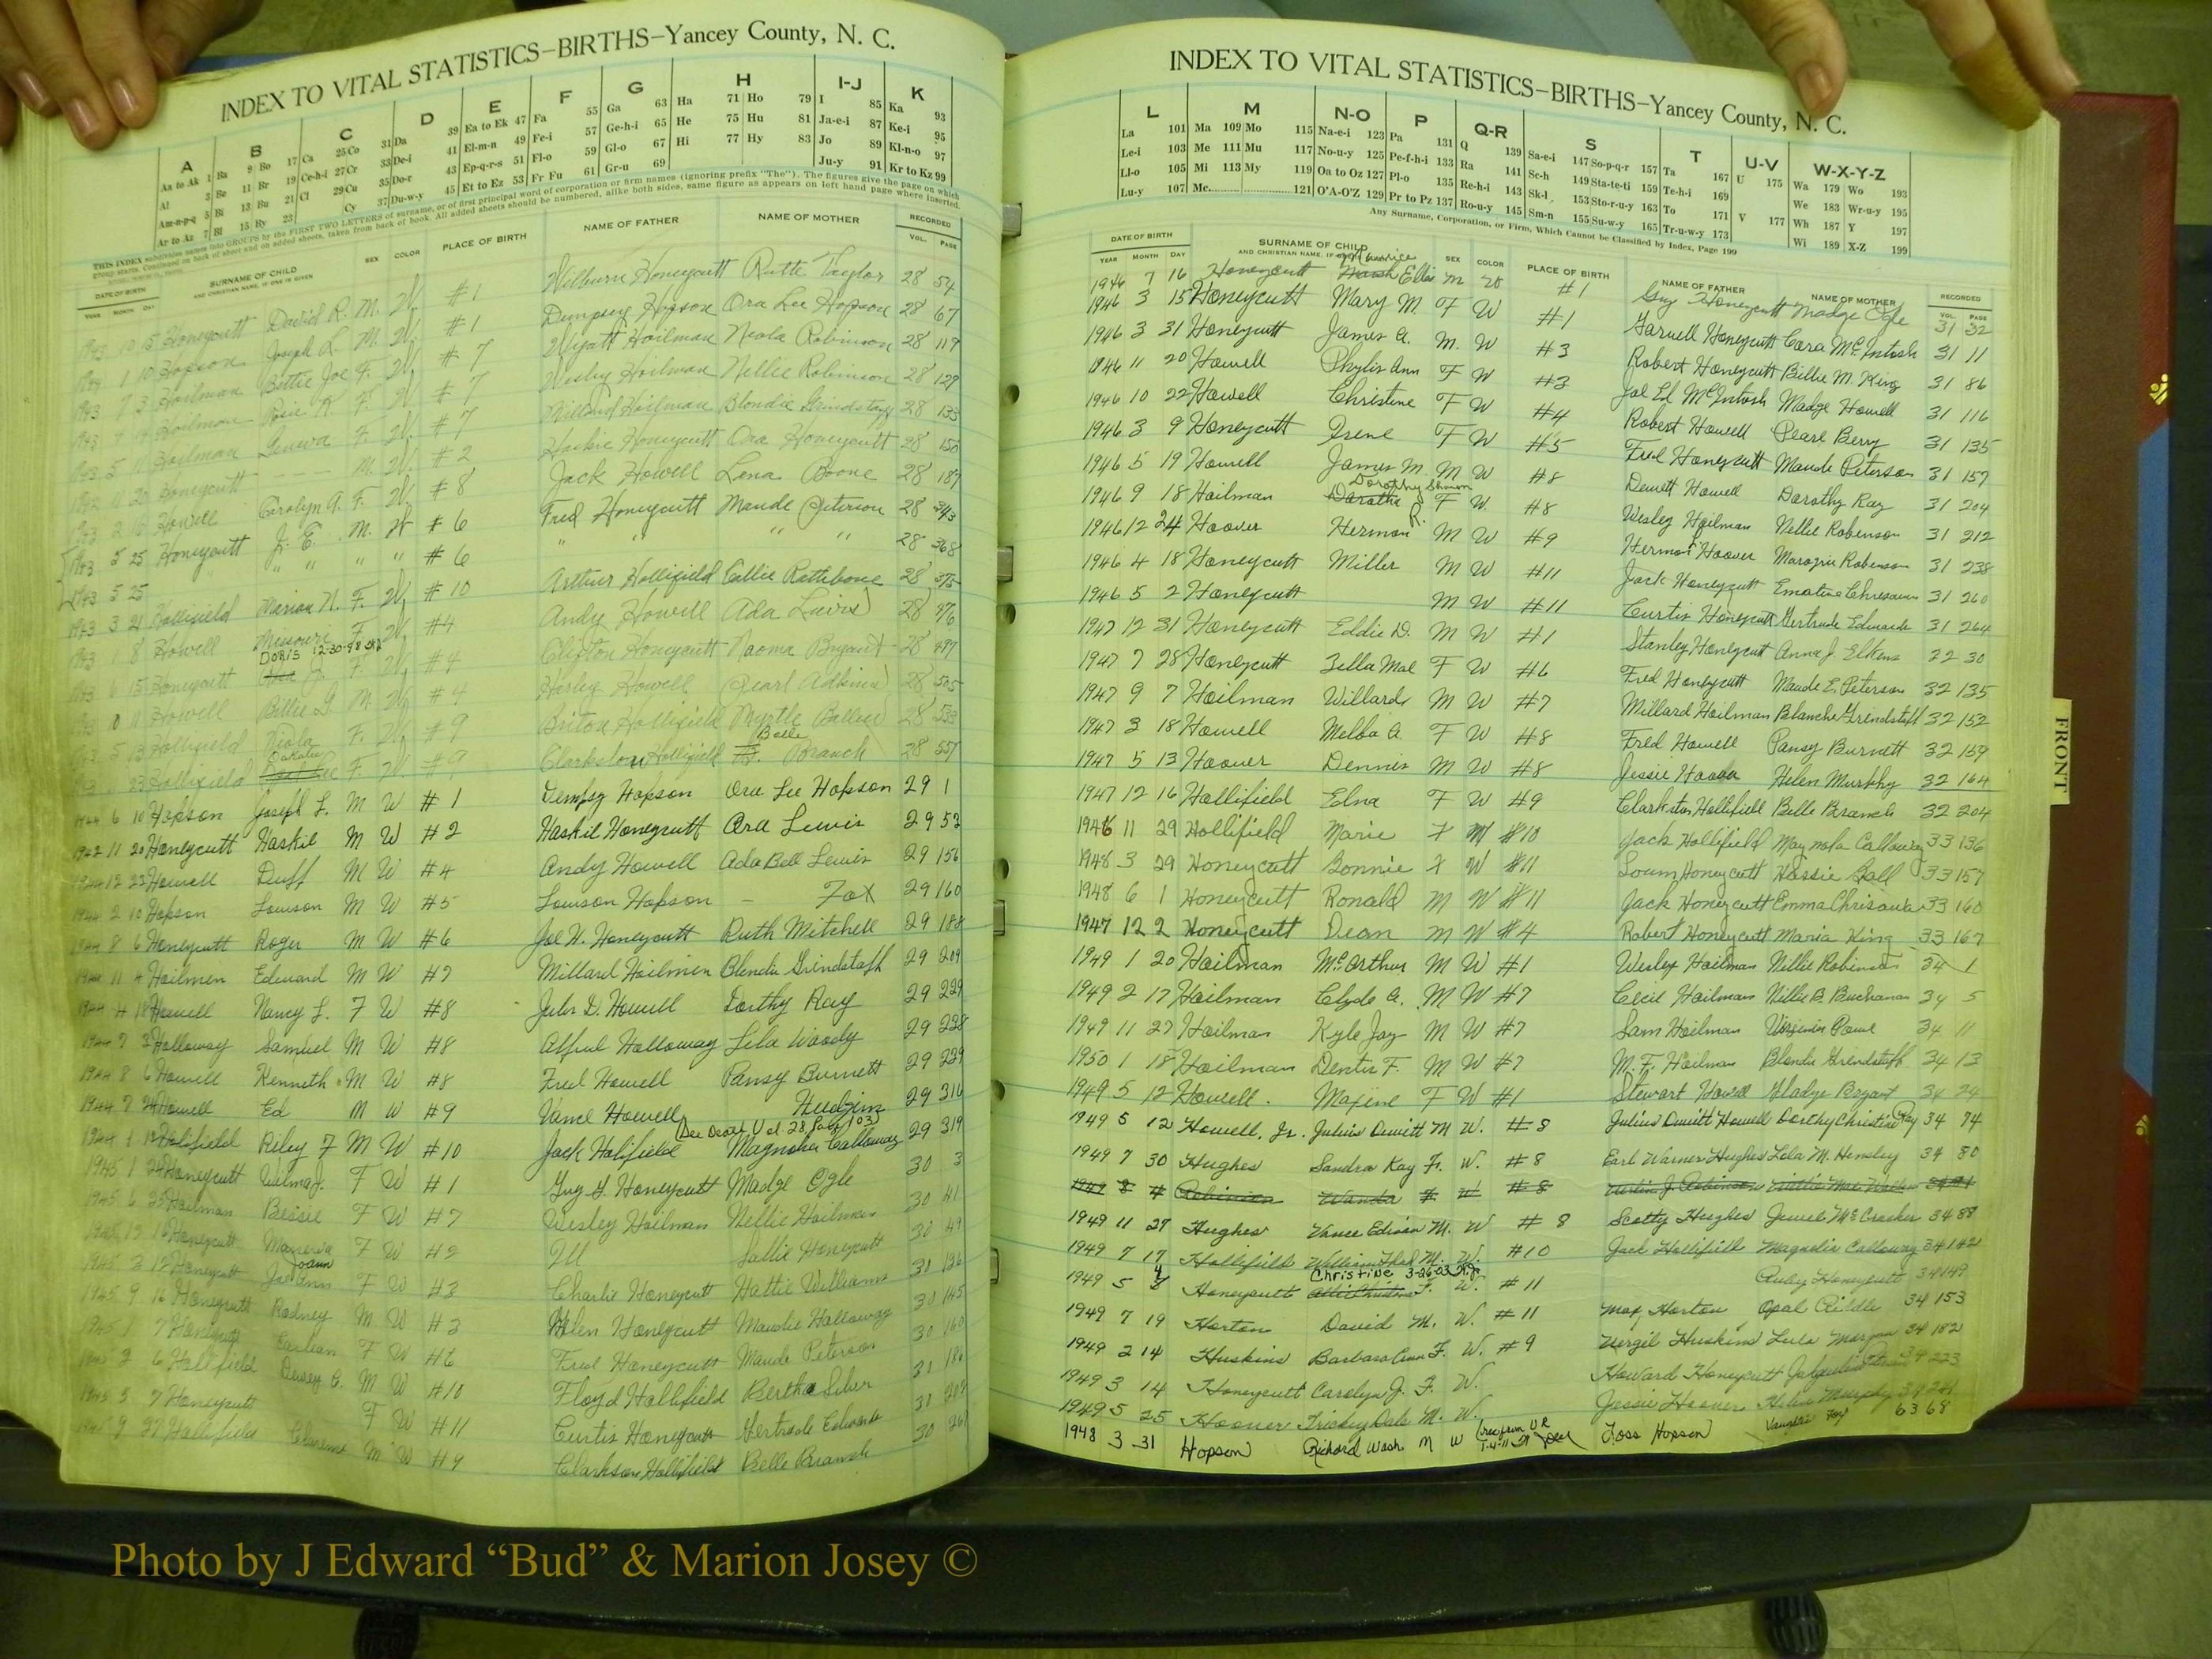 INDEX TO VITAL STATISTICS–BIRTHS–Yancey County, N. C.
A B C D E F G H I-J K
Aa to Ak 1 Ba 9 Bo 17 Ca 25 Co 31 Da 39 Ea to Ek 47 Fa 55 Ga 63 Ha 71 Ho 79 I 85 Ka 93
Al 3 Be 11 Br 19 Ce-h-i 27 Cr 33 De-i 41 El-m-n 49 Fe-i 57 Ge-h-i 65 He 75 Hu 81 Ja-e-i 87 Ke-i 95
Am-n-p-q 5 Bi 13 Bu 21 Cl 29 Cu 35 Do-r 43 Ep-q-r-s 51 Fl-o 59 Gl-o 67 Hi 77 Hy 83 Jo 89 Kl-n-o 97
Ar to Az 7 Bl 15 By 23 Cy 37 Du-w-y 45 Et to Ez 53 Fr Fu 61 Gr-u 69 Ju-y 91 Kr to Kz 99
THIS INDEX subdivides names into GROUPS by the FIRST TWO LETTERS of surname, or of first principal word of corporation or firm names (ignoring prefix "The"). The figures give the page on which
group starts. Continued on back of sheet and on added sheets, taken from back of book. All added sheets should be numbered, alike both sides, same figure as appears on left hand page where inserted.
DATE OF BIRTH SURNAME OF CHILD SEX COLOR PLACE OF BIRTH NAME OF FATHER NAME OF MOTHER RECORDED
YEAR MONTH DAY AND CHRISTIAN NAME, IF ONE IS GIVEN VOL. PAGE
Honeycutt David R. M. W. #1 Wilburn Honeycutt Ruth Taylor 28 54
Hopson Joseph L. M. W. #1 Dempsey Hopson Ora Lee Hopson 28 67
Hoilman Bettie Joe F. W. #7 Wyatt Hoilman Neola Robinson 28 119
Hoilman Rosie F. W. #7 Wesley Hoilman Nellie Robinson 28 129
Hoilman Geneva F. W. #7 Millard Hoilman Blondie Grindstaff 28 133
Honeycutt M. W. #2 Haskie Honeycutt Ora Honeycutt 28 150
Howell Carolyn A. F. W. #8 Jack Howell Lena Boone 28 187
1943 5 25 Honeycutt J. E. M. W #6 Fred Honeycutt Maude Peterson 28 343
1943 5 25 " " " " #6 " " " " 28 368
1943 3 21 Hollifield Marian N. F. W. #10 Arthur Hollifield Callie Rathbone 28 375
Howell Missouri F. W. #4 Andy Howell Ada Lewis 28 476
Doris 12-30-98
Honeycutt J. F. W. #4 Clifton Honeycutt Naoma Bryant 28 497
Howell Billie G M. W. #4 Harley Howell Pearl Adkins 28 505
Hollifield Viola F. W. #9 Briton Hollifield Myrtle Ballew 28 533
Hollifield F. W. #9 Clarkston Hollifield Belle Branch 28 557
6 10 Hopson Joseph L. M W #1 Dempsy Hopson Ora Lee Hopson 29 1
1942 11 20 Honeycutt Haskil M W #2 Haskil Honeycutt Ora Lewis 29 53
1944 12 23 Howell Duff M W #4 Andy Howell Ada Bell Lewis 29 156
2 10 Hopson Lowson M W #5 Lowson Hopson – Fox 29 160
1944 8 6 Honeycutt Roger M W #6 Joe W. Honeycutt Ruth Mitchell 29 188
11 4 Hoilmen Edward M W #7 Millard Hoilmen Blondie Grindstaff 29 209
Howell Nancy L. F W #8 Jules D. Howell Dorthy Ray 29 229
1944 7 3 Holloway Samuel M W #8 Alfred Holloway Lela Woody 29 238
1944 8 6 Howell Kenneth M W #8 Fred Howell Pansy Burnett 29 239
1944 7 Howell Ed M W #9 Vance Howell Hudgins 29 316
(See Death Vol 28, Page 103)
Holifield Riley F M W #10 Jack Holifield Magnolia Calloway 29 319
1945 1 24 Honeycutt Wilma J. F W #1 Guy G. Honeycutt Madge Ogle 30 3
1945 6 25 Hoilman Bessie F W #7 Wesley Hoilman Nellie Hoilman 30 41
Honeycutt F W #2 Ill Sallie Honeycutt 30 49
Joann
1945 2 Honeycutt F W #3 Charlie Honeycutt Hattie Williams 31 136
1945 9 16 Honeycutt Rodney M W #3 Honeycutt Maudie Holloway 30 145
Honeycutt Earlean F W #6 Fred Honeycutt Maude Peterson 30 160
6 Hollifield Dewey M W #10 Floyd Hollifield Bertha Silver 31
1945 5 7 Honeycutt F W #11 Curtis Honeycutt Gertrude Edwards 31
1945 9 27 Hollifield Clarence M W #9 Clarkson Hollifield Belle Branch 30 26
INDEX TO VITAL STATISTICS–BIRTHS–Yancey County, N. C.
L M N-O P Q-R S T U-V W-X-Y-Z
La 101 Ma 109 Mo 115 Na-e-i 123 Pa 131 Q 139 Sa-e-i 147 So-p-q-r 157 Ta 167 U 175 Wa 179 Wo 193
Le-i 103 Me 111 Mu 117 No-u-y 125 Pe-f-h-i 133 Ra 141 Sc-h 149 Sta-te-ti 159 Te-h-i 169 We 183 Wr-u-y 195
Ll-o 105 Mi 113 My 119 Oa to Oz 127 Pl-o 135 Re-h-i 143 Sk-l 153 Sto-r-u-y 163 To 171 V 177 Wh 187 Y 197
Lu-y 107 Mc 121 O'A-O'Z 129 Pr to Pz 137 Ro-u-y 145 Sm-n 155 Su-w-y 165 Tr-u-w-y 173 Wi 189 X-Z 199
Any Surname, Corporation, or Firm, Which Cannot be Classified by Index, Page 199
DATE OF BIRTH SURNAME OF CHILD SEX COLOR PLACE OF BIRTH NAME OF FATHER NAME OF MOTHER RECORDED
YEAR MONTH DAY AND CHRISTIAN NAME, IF VOL. PAGE
Maurice
1946 7 16 Honeycutt Ellis M W #1 Guy Honeycutt Madge Ogle 31 32
1946 3 15 Honeycutt Mary M. F W #1 Garnell Honeycutt Cora McIntosh 31 11
1946 3 31 Honeycutt James A. M. W #3 Robert Honeycutt Billie M. King 31 86
1946 11 20 Howell Phylis Ann F W #3 Joe Ed McIntosh Madge Howell 31 116
1946 10 22 Howell Christine F W #4 Robert Howell Pearl Berry 31 135
1946 3 9 Honeycutt Irene F W #5 Fred Honeycutt Maude Peterson 31 157
1946 5 19 Howell James M. M W #8 Dewett Howell Dorothy Ray 31 204
1946 9 18 Hoilman Dorothy F W. #8 Wesley Hoilman Nellie Robinson 31 212
1946 12 24 Hoover Hermon R. M W #9 Hermon Hoover Marojrie Robinson 31 238
1946 4 18 Honeycutt Miller M W #11 Jack Honeycutt Emotine Chrisawn 31 260
1946 5 2 Honeycutt M W #11 Curtis Honeycutt Gertrude Edwards 31 264
1947 12 31 Honeycutt Eddie D. M W #1 Stanley Honeycutt Anna J. Elkins 32 30
1947 7 28 Honeycutt Zella Mae F W #6 Fred Honeycutt Maude E. Peterson 32 135
1947 9 7 Hoilman Willard M W #7 Millard Hoilman Blanche Grindstaff 32 152
1947 3 18 Howell Melba A. F W #8 Fred Howell Pansy Burnett 32 159
1947 5 13 Hoover Dennis M W #8 Jessie Hoover Helen Murphy 32 164
1947 12 16 Hollifield Edna F W #9 Clarkston Hollifield Belle Branch 32 204
1946 11 29 Hollifield Marie F W #10 Jack Hollifield Magnola Calloway 33 136
1948 3 29 Honeycutt Bonnie F W #11 Honeycutt Hassie Gall 33 157
1948 6 1 Honeycutt Ronald M W #11 Jack Honeycutt Emma Chrisawn 33 160
1947 12 2 Honeycutt Dean M W #4 Robert Honeycutt Maria King 33 167
1949 1 20 Hoilman McArthur M W #1 Wesley Hoilman Nellie Robinson 34 1
1949 2 17 Hoilman Clyde A. M W #7 Cecil Hoilman Nellie B Buchanan 34 5
1949 11 27 Hoilman Kyle Jay M W #7 Sam Hoilman Virginia 34 11
1950 1 18 Hoilman Denter F. M W #7 M. F. Hoilman Blonda Grindstaff 34 13
1949 5 12 Howell. Maxine F W #1 Stewart Howell Gladys Bryant 34 24
1949 5 12 Howell, Jr. Julius Dewitt M W. #8 Julius Dewitt Howell Dorthy Christine Ray 34 74
1949 7 30 Hughes Sandra Kay F. W. #8 Earl Warner Hughes Lola M. Hensley 34 80
1949 8 4 Robinson Wanda F. W #8
1949 11 27 Hughes Vance Edison M. W #8 Scotty Hughes Jewel McCracker 34 88
1949 7 17 Hollifield William M. W. #10 Jack Hollifield Magnolia Calloway 34 142
Christine 3-26-03
1949 5 Honeycutt F. W. #11 Ruby Honeycutt 34 149
1949 7 19 Horton David M. W. #11 Max Horton Opal Riddle 34 153
1949 2 14 Huskins Barbara Ann F. W. #9 Vergil Huskins Lula Morgan 34 182
1949 3 14 Honeycutt Carolyn J. F. W. Howard Honeycutt 34 223
1949 5 25 Hoover Dale M. W. Jessie Hoover Helen Murphy 34 241
1948 3 31 Hopson Richard Wash M W Foss Hopson 63 68
FRONT
Photo by J Edward “Bud” & Marion Josey ©